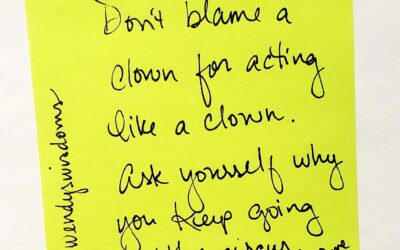 Don't blame a
clown for acting
like a clown.
Ask yourself why
you keep going
wendyswisdoms